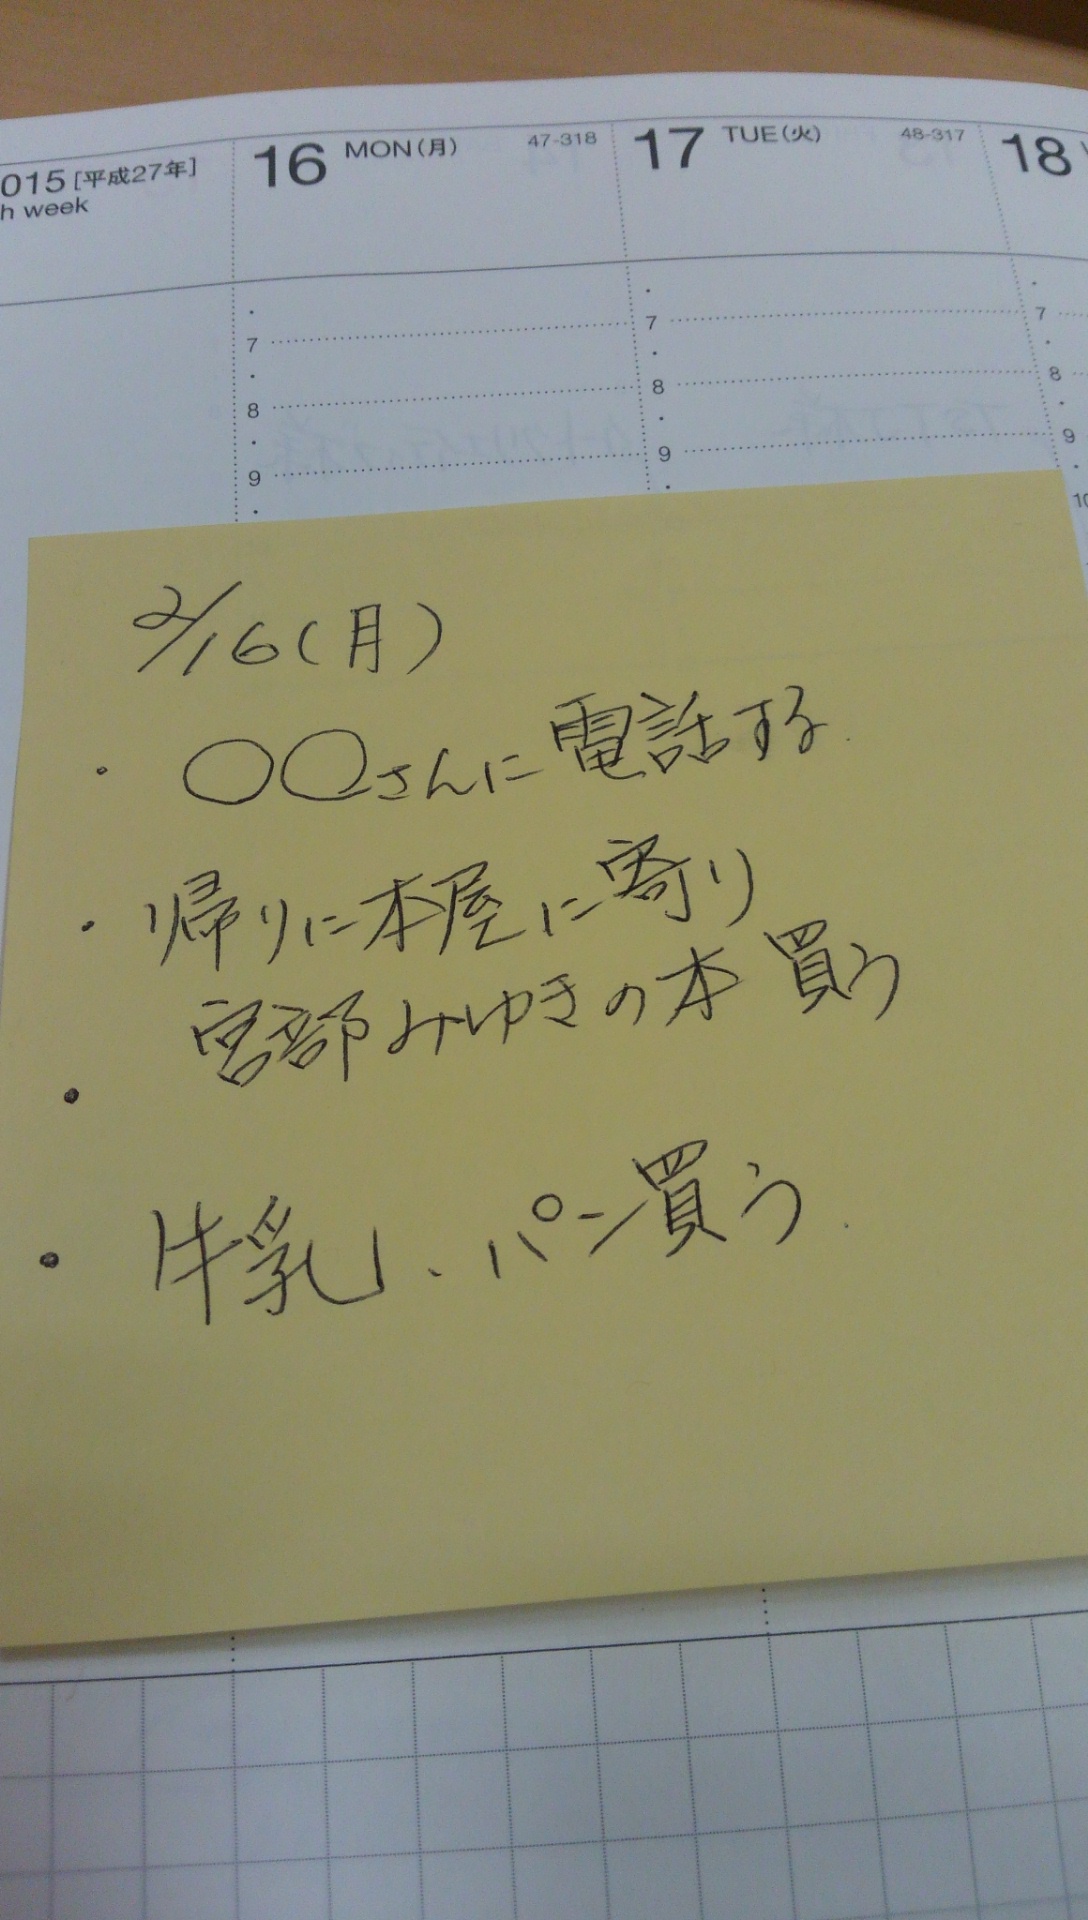 015[平成27年]
h week
16 MON(月) 47-318
17 TUE(火) 48-317
18
7
8
9
7
8
9
7
8
9
10
2/16(月)
・ ○○さんに電話する.
・ 帰りに本屋に寄り
宮部みゆきの本 買う
・
・ 牛乳、パン買う.